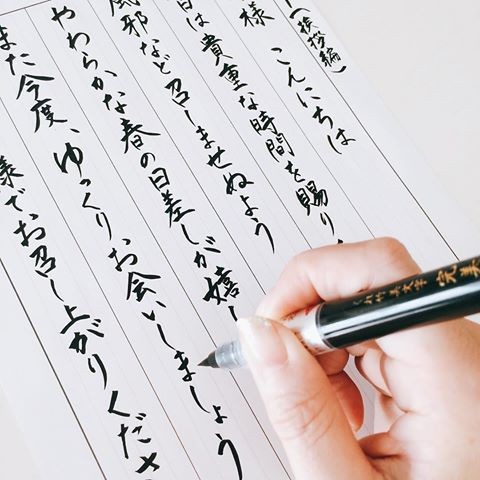 （挨拶編）
様 こんにちは
日は貴重な時間を賜り
風邪など召しませぬよう
やわらかな春の日差しが嬉し
また今度、ゆっくりお会いしましょう
様でお召し上がりくださ
くれ竹 美文字 完美